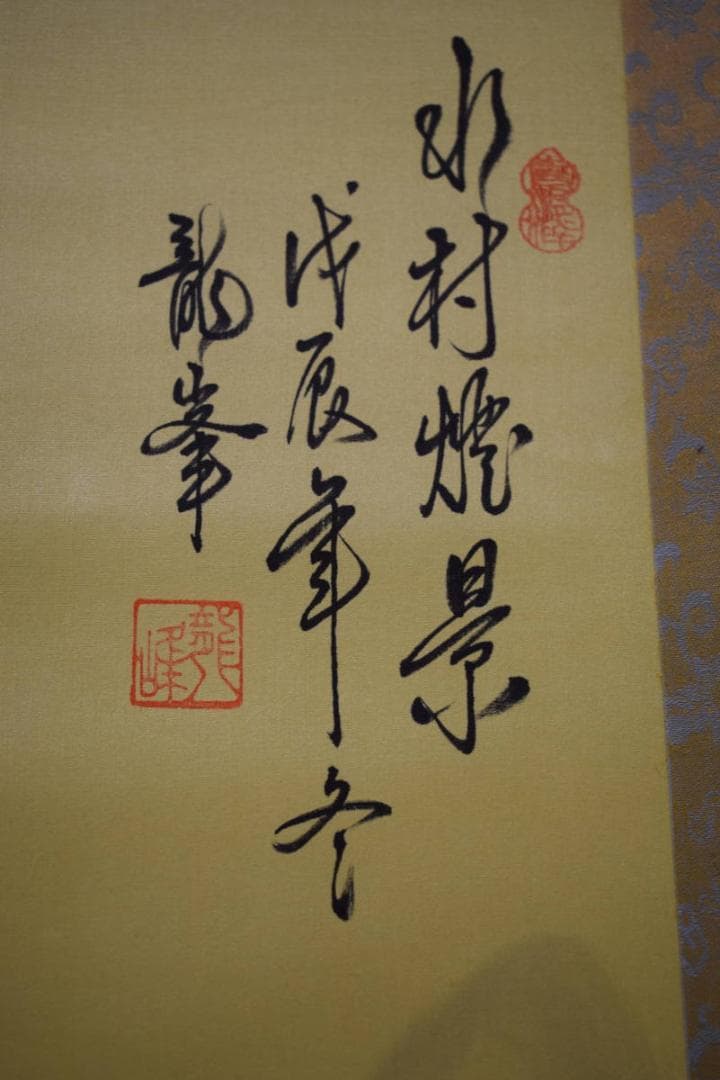 水村燈景
戊辰年冬
龍峯
龍峰